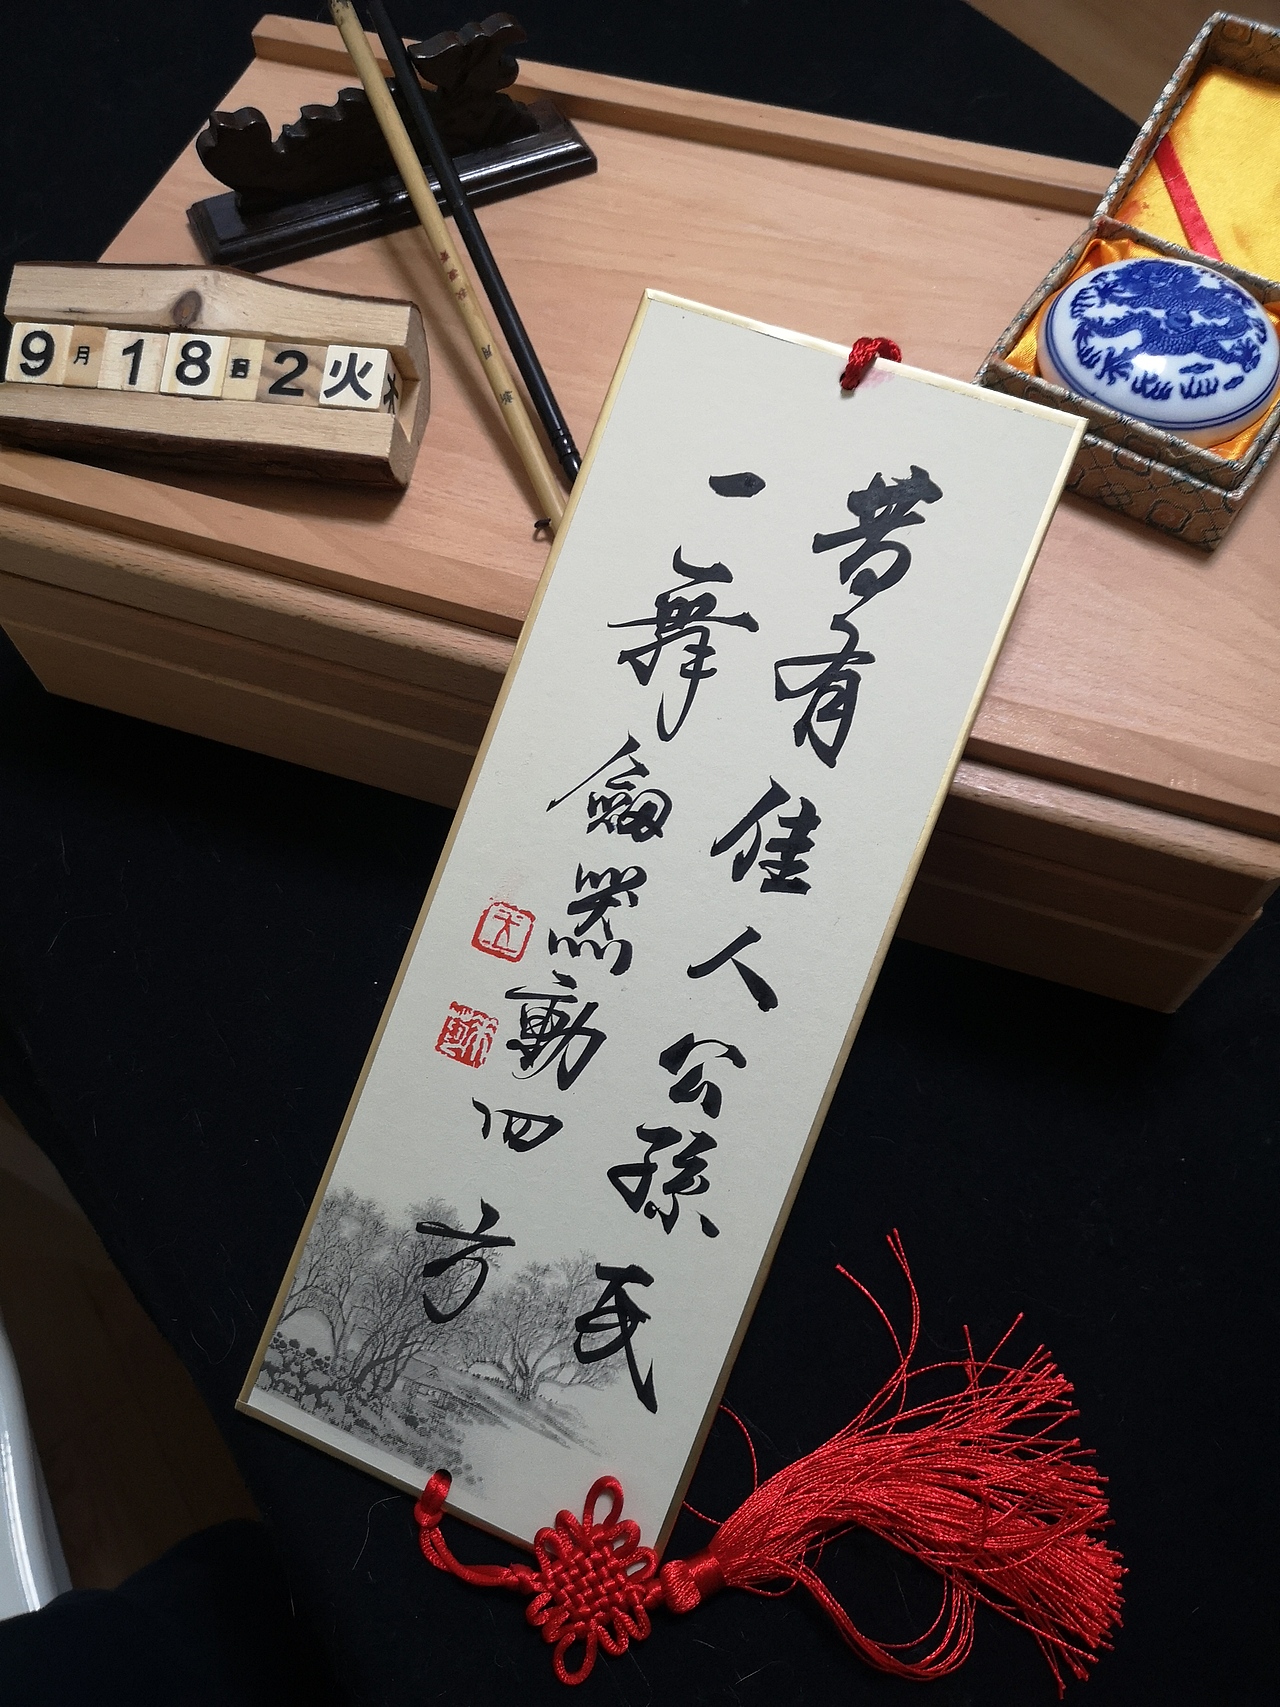 昔有佳人公孫氏
一舞劔器動四方
9月18日2火